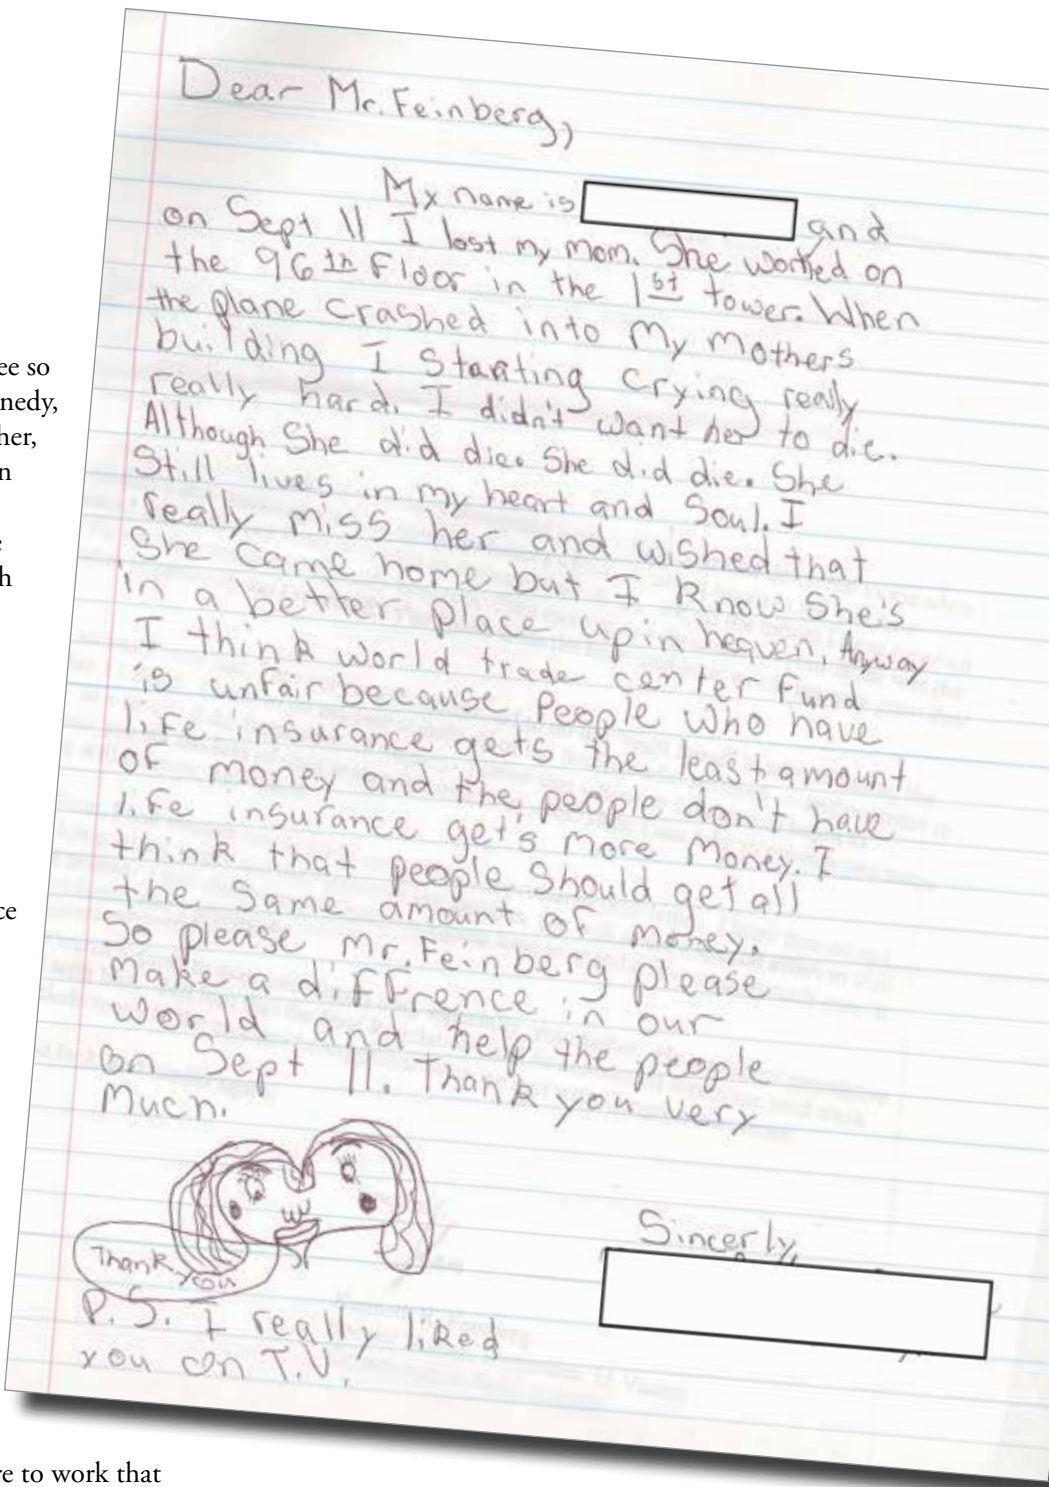 Dear Mr. Feinberg,
My name is and
on Sept 11 I lost my mom. She worked on
the 96th Floor in the 1st tower. When
the plane crashed into my mothers
building I Starting crying really
really hard. I didn't want her to die.
Although She did die. She did die. She
Still lives in my heart and Soul. I
really miss her and wished that
She came home but I know She's
in a better place up in heaven, Anyway
I think world trade center fund
is unfair because people who have
life insurance gets the least amount
of money and the people don't have
life insurance get's more money. I
think that people Should get all
the Same amount of money.
So please Mr. Feinberg please
make a diffrence in our
world and help the people
on Sept 11. Thank you very
Much.
Thank you
Sincerly,
P.S. I really liked
you on T.V.
ee so
nedy,
her,
n
e
h
ce
re to work that